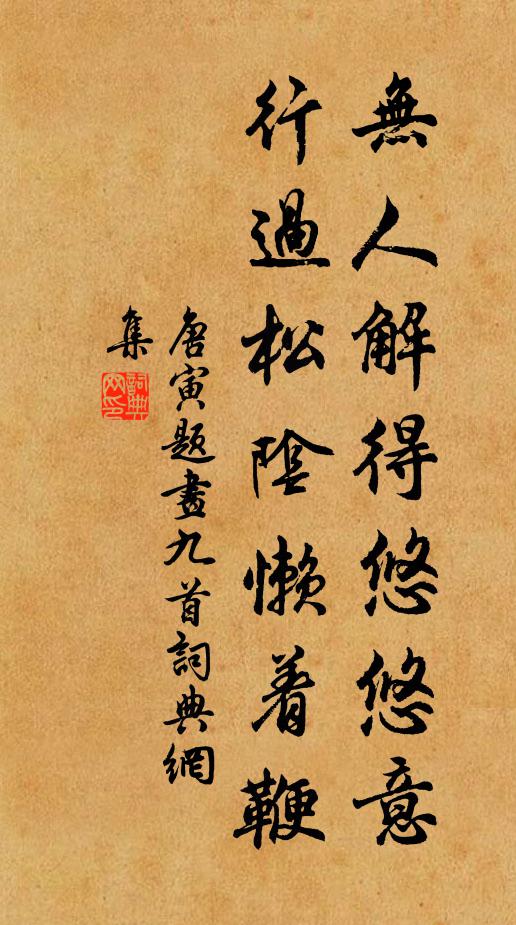 無人解得悠悠意
行過松陰懶着鞭
唐寅題畫九首詞典網
集
詞典
网印